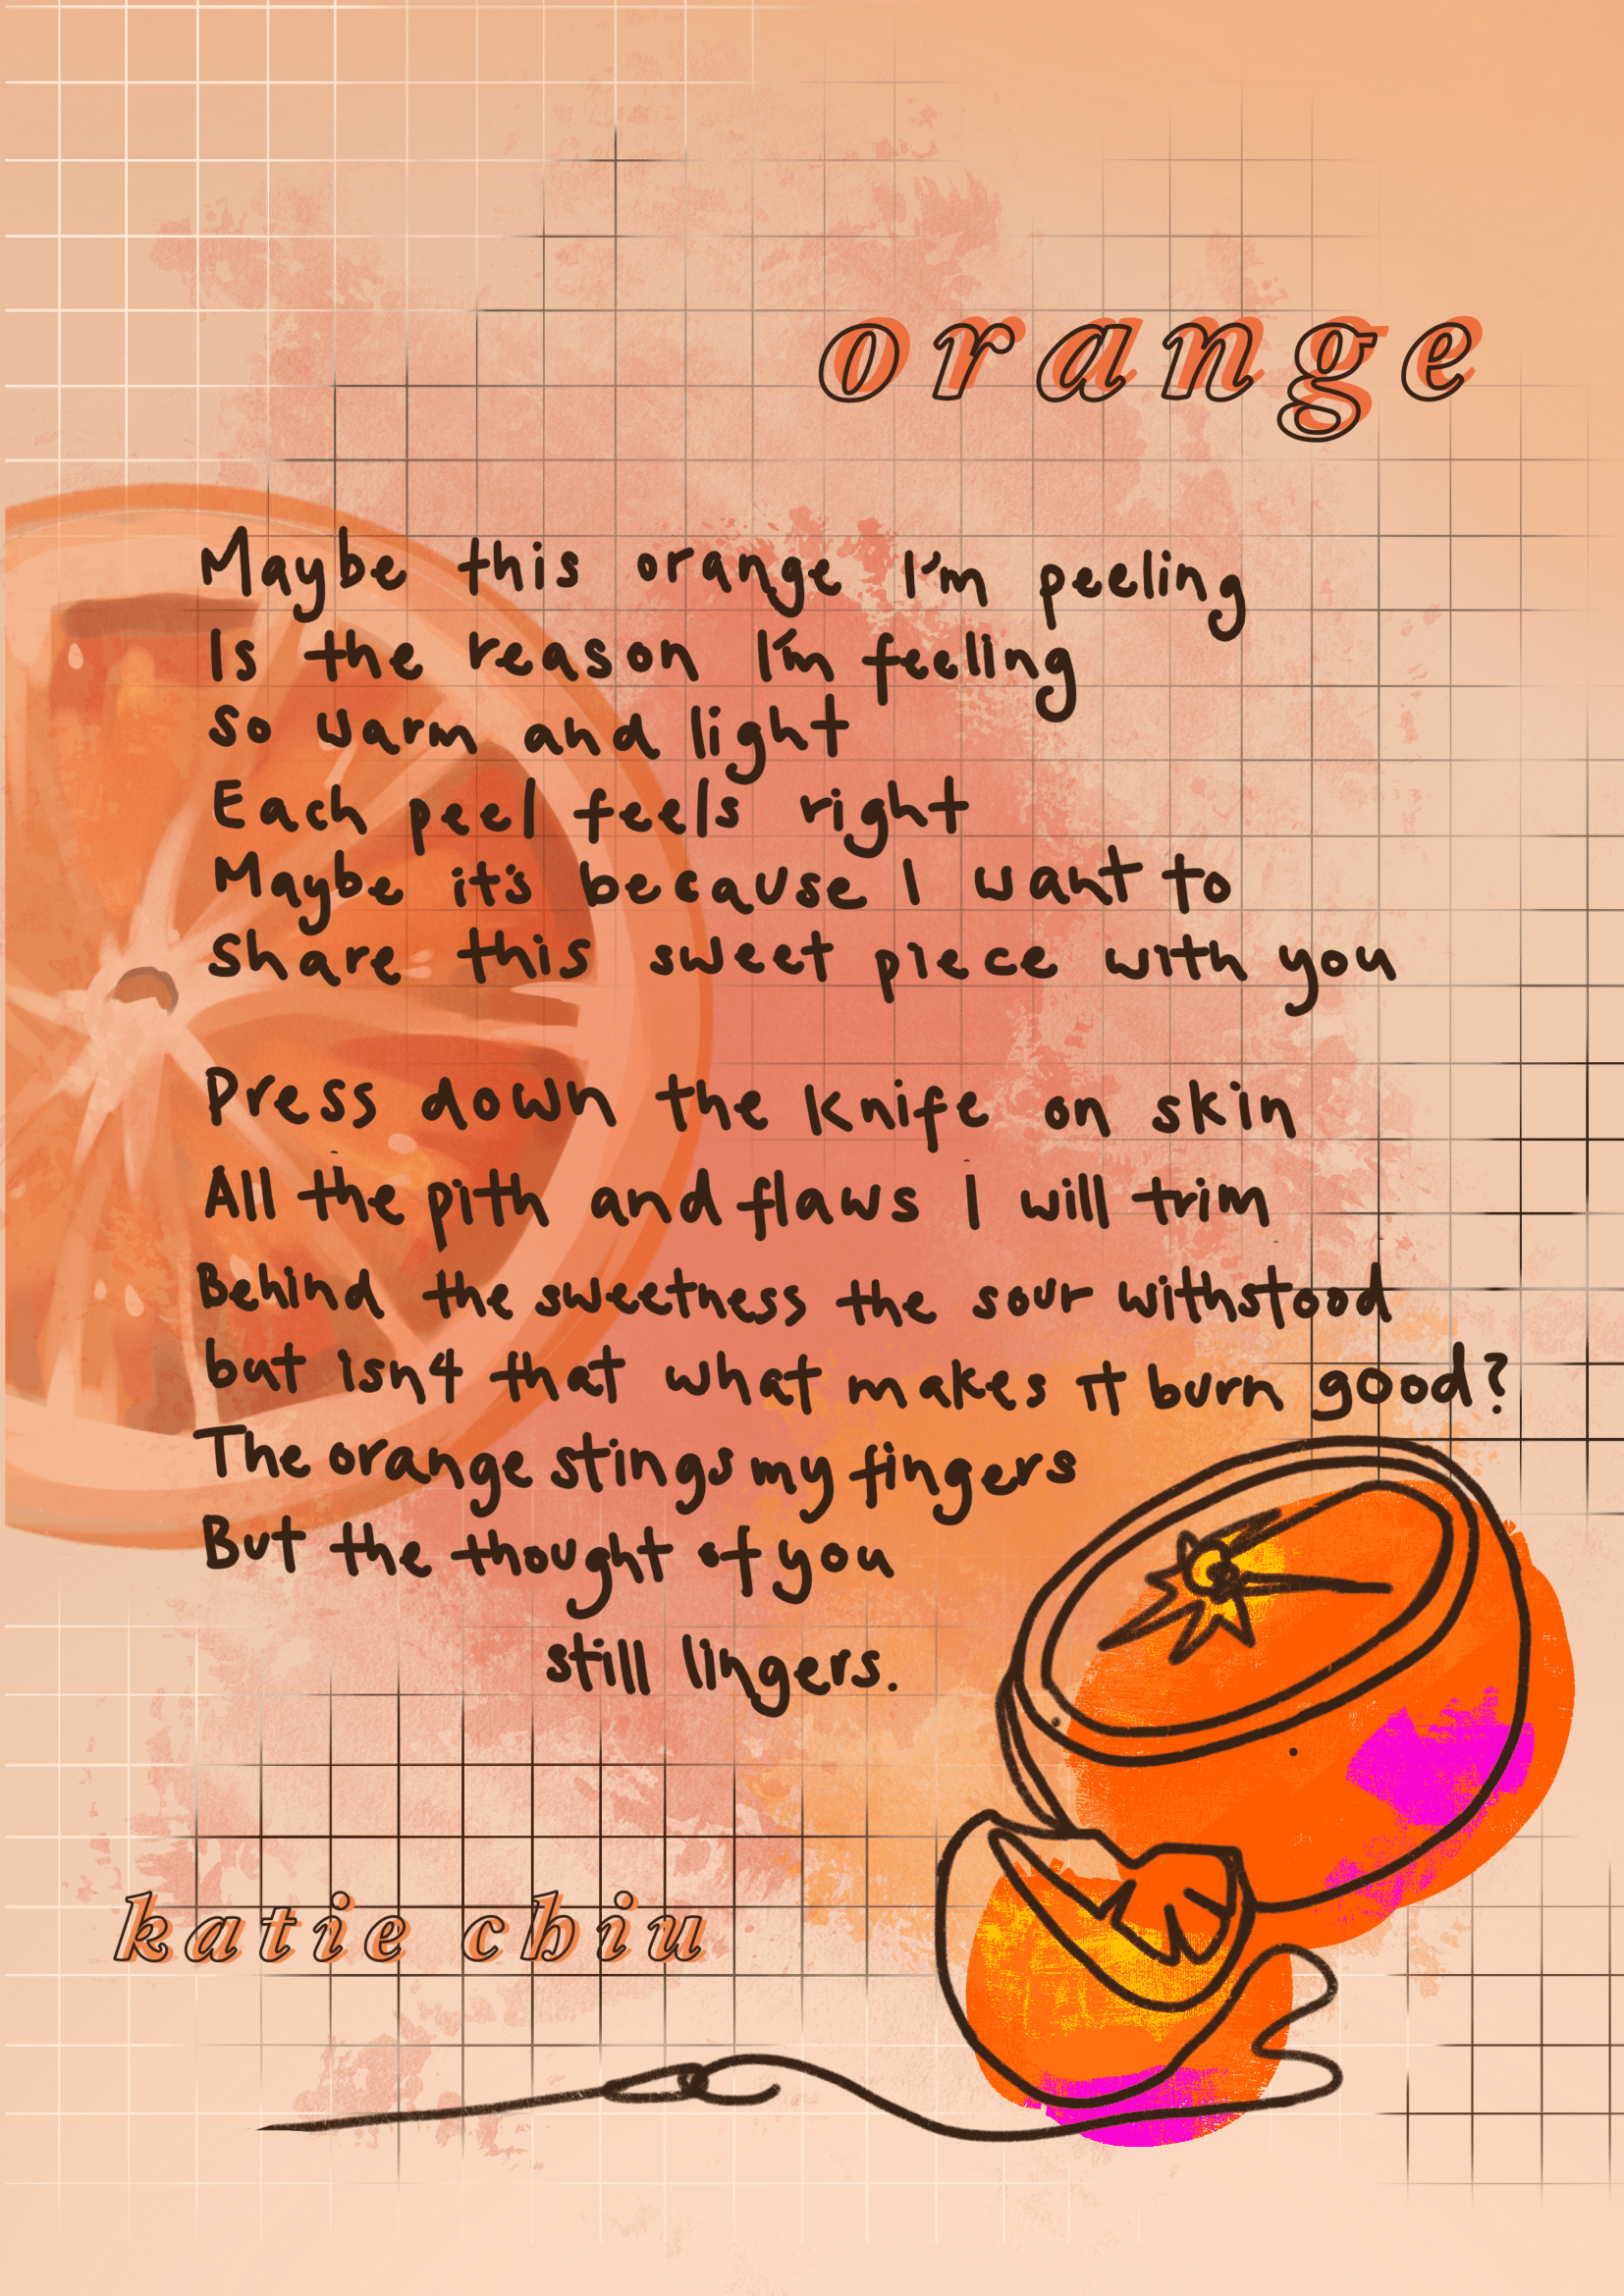 orange
Maybe this orange I'm peeling
Is the reason I'm feeling
so warm and light
Each peel feels right
Maybe it's because I want to
Share this sweet piece with you
Press down the knife on skin
All the pith and flaws I will trim
Behind the sweetness the sour withstood
but isn't that what makes it burn good?
The orange stings my fingers
But the thought of you
still lingers.
katie chiu